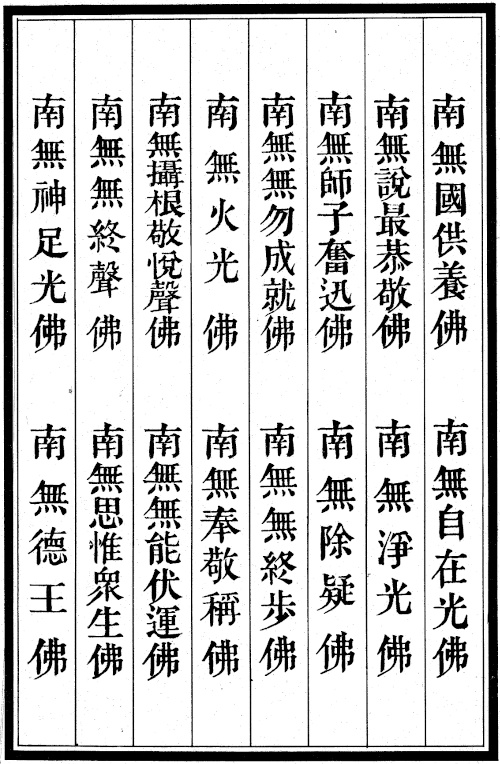 南無國供養佛　南無自在光佛
南無說最恭敬佛　南無淨光佛
南無師子奮迅佛　南無除疑佛
南無無勿成就佛　南無無終步佛
南無火光佛　南無奉敬稱佛
南無攝根敬悅聲佛　南無無能伏運佛
南無無終聲佛　南無思惟眾生佛
南無神足光佛　南無德王佛